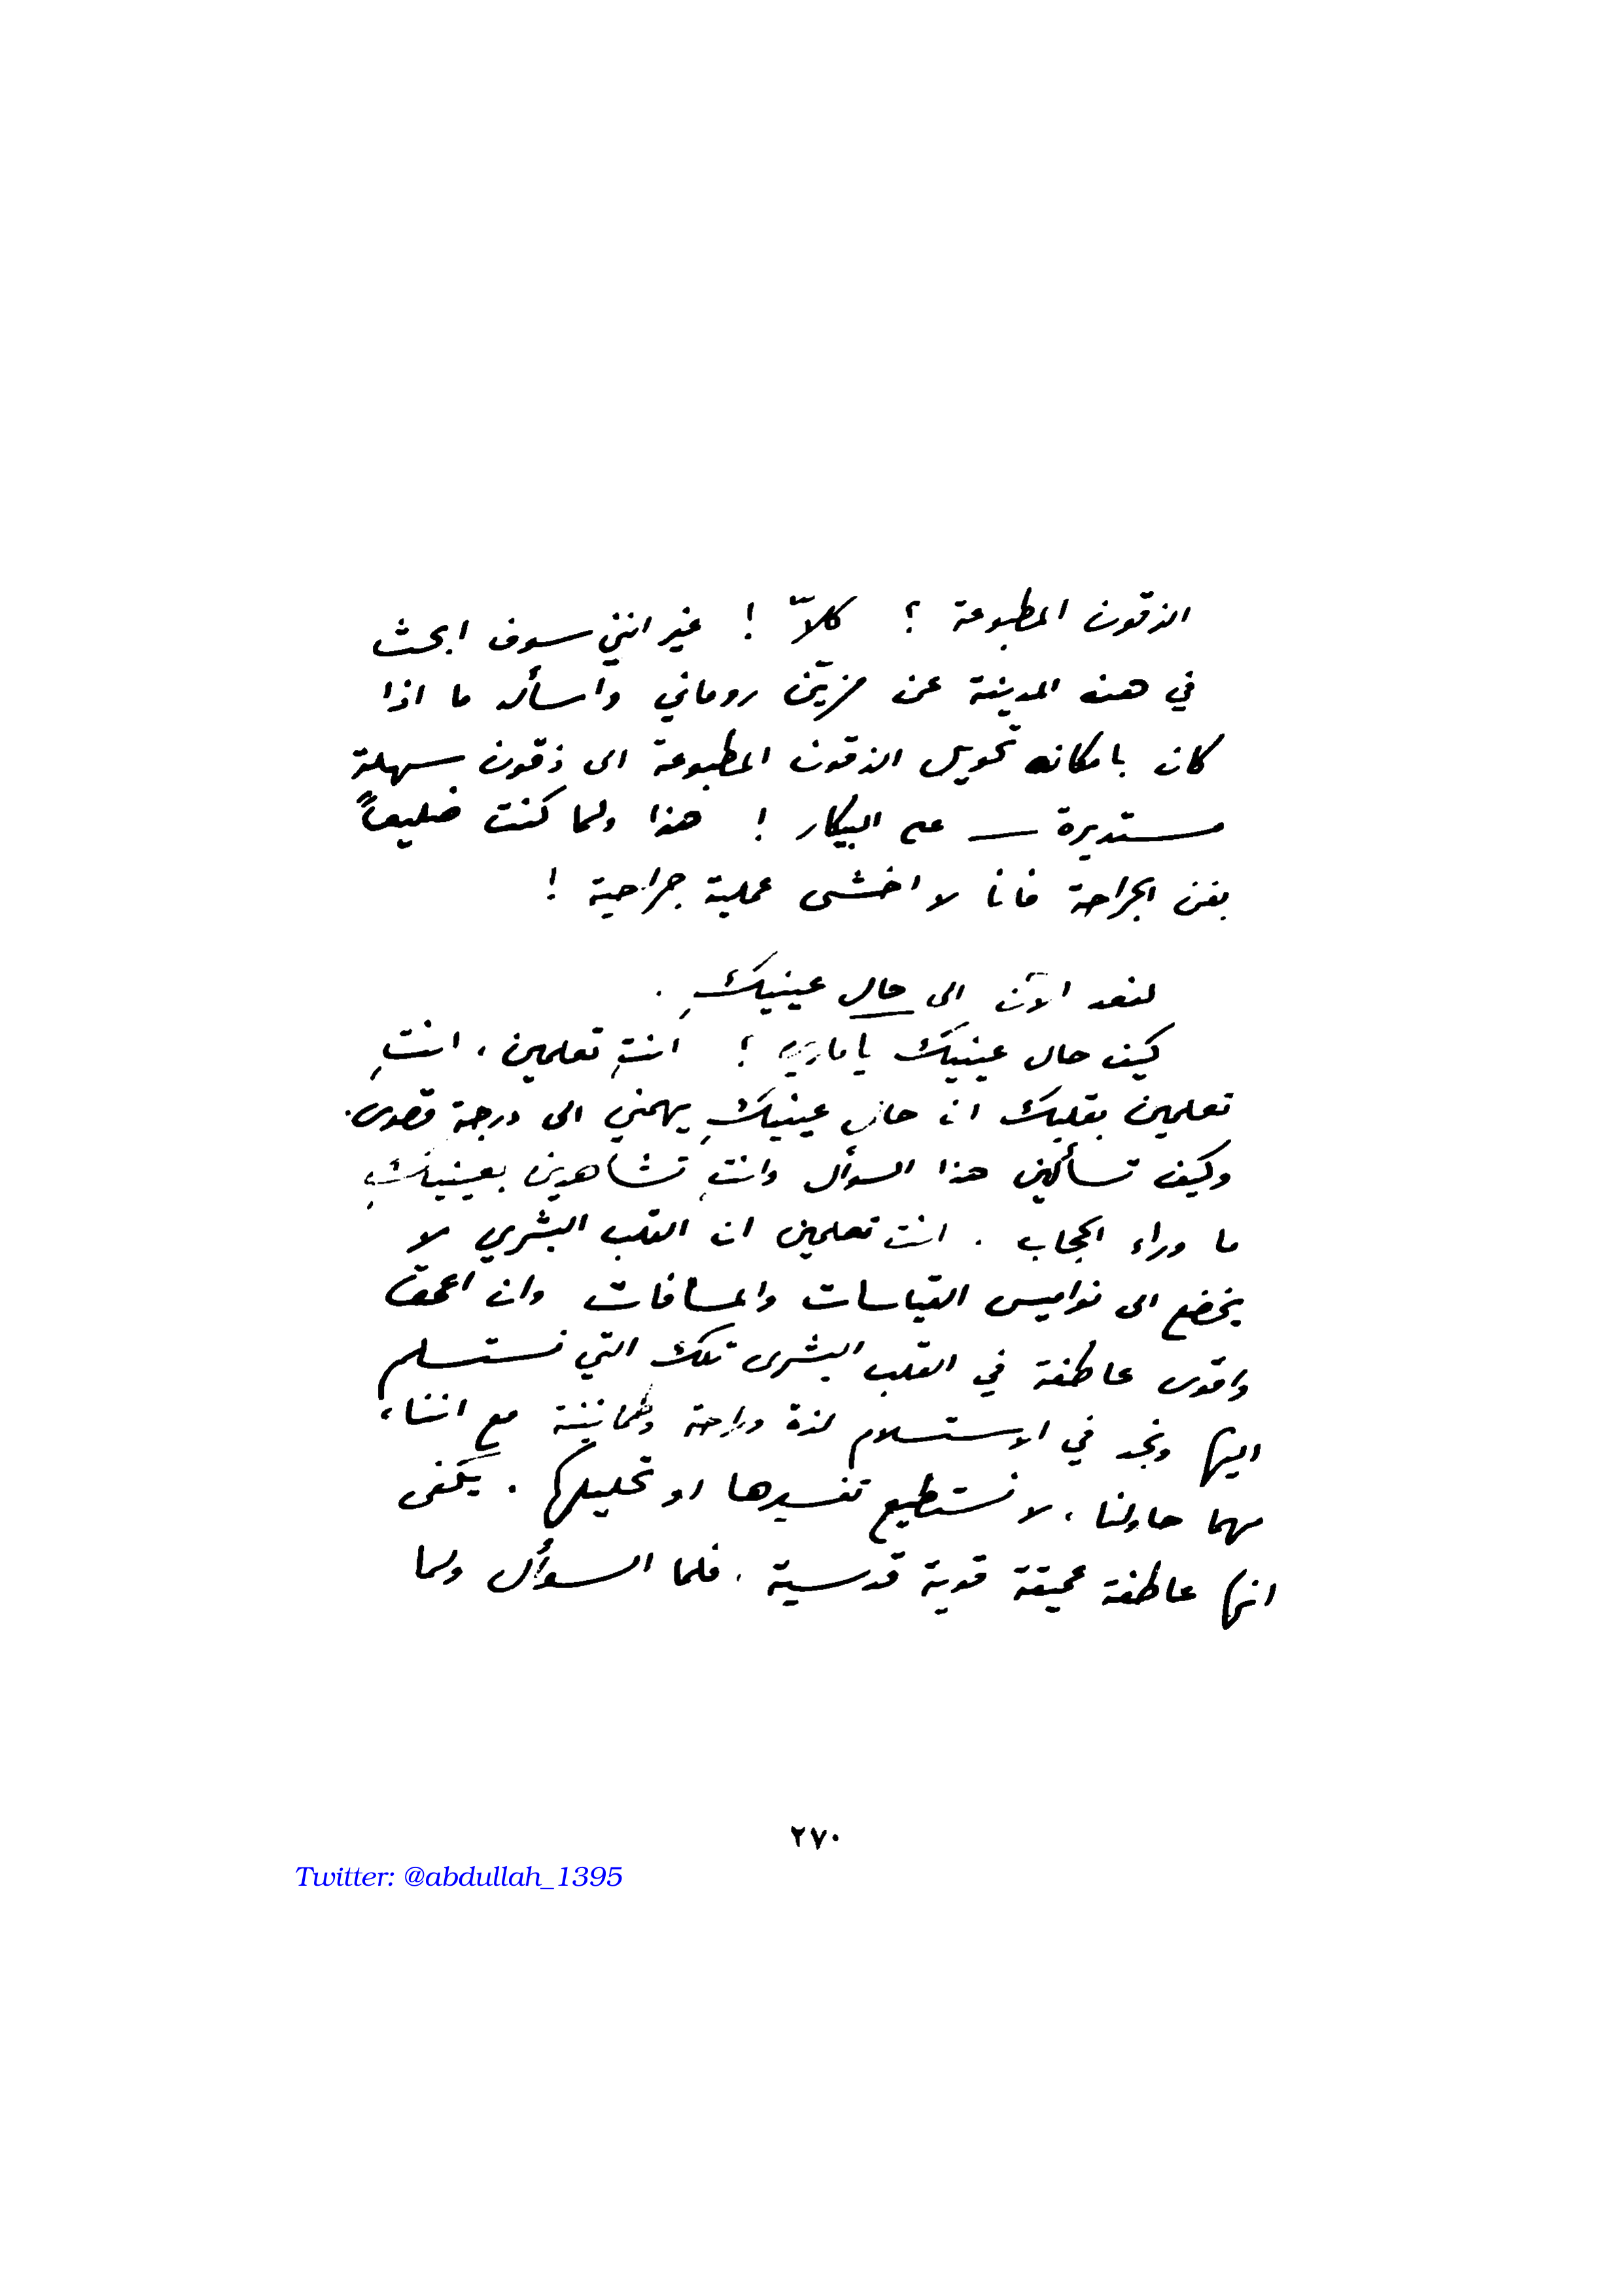 الذقون المطبوعة ؟ كلاّ ! غير انني سوف ابحث
في هذه المدينة عن مزيّن روماني وأسأله ما اذا
كان بامكانه تحويل الذقون المطبوعة الى ذقون سهلة
مستديرة — على البيكار ! هذا ولما كنت ضليعاً
بفن الجراحة فانا لا اخشى عملية جراحية !
لنعد الآن الى حال عينيكِ .
كيف حال عينيك يا ماري ؟ انتِ تعلمين ، انتِ
تعلمين بقلبك ان حال عينيكِ يهمني الى درجة قصوى .
وكيف تسألين هذا السؤال وانتِ تشاهدين بعينيكِ
ما وراء الحجاب . انت تعلمين ان القلب البشري لا
يخضع الى نواميس القياسات والمسافات وان اعمق
واقوى عاطفة في القلب البشرى تلك التي نستسلم
اليها ونجد في الاستسلام لذة وراحة وطمانينة مع اننا ،
مهما حاولنا ، لا نستطيع تفسيرها او تحليلها . يكفى
انها عاطفة عميقة قوية قدسية . فلما السؤال ولما
٢٧٠
Twitter: @abdullah_1395